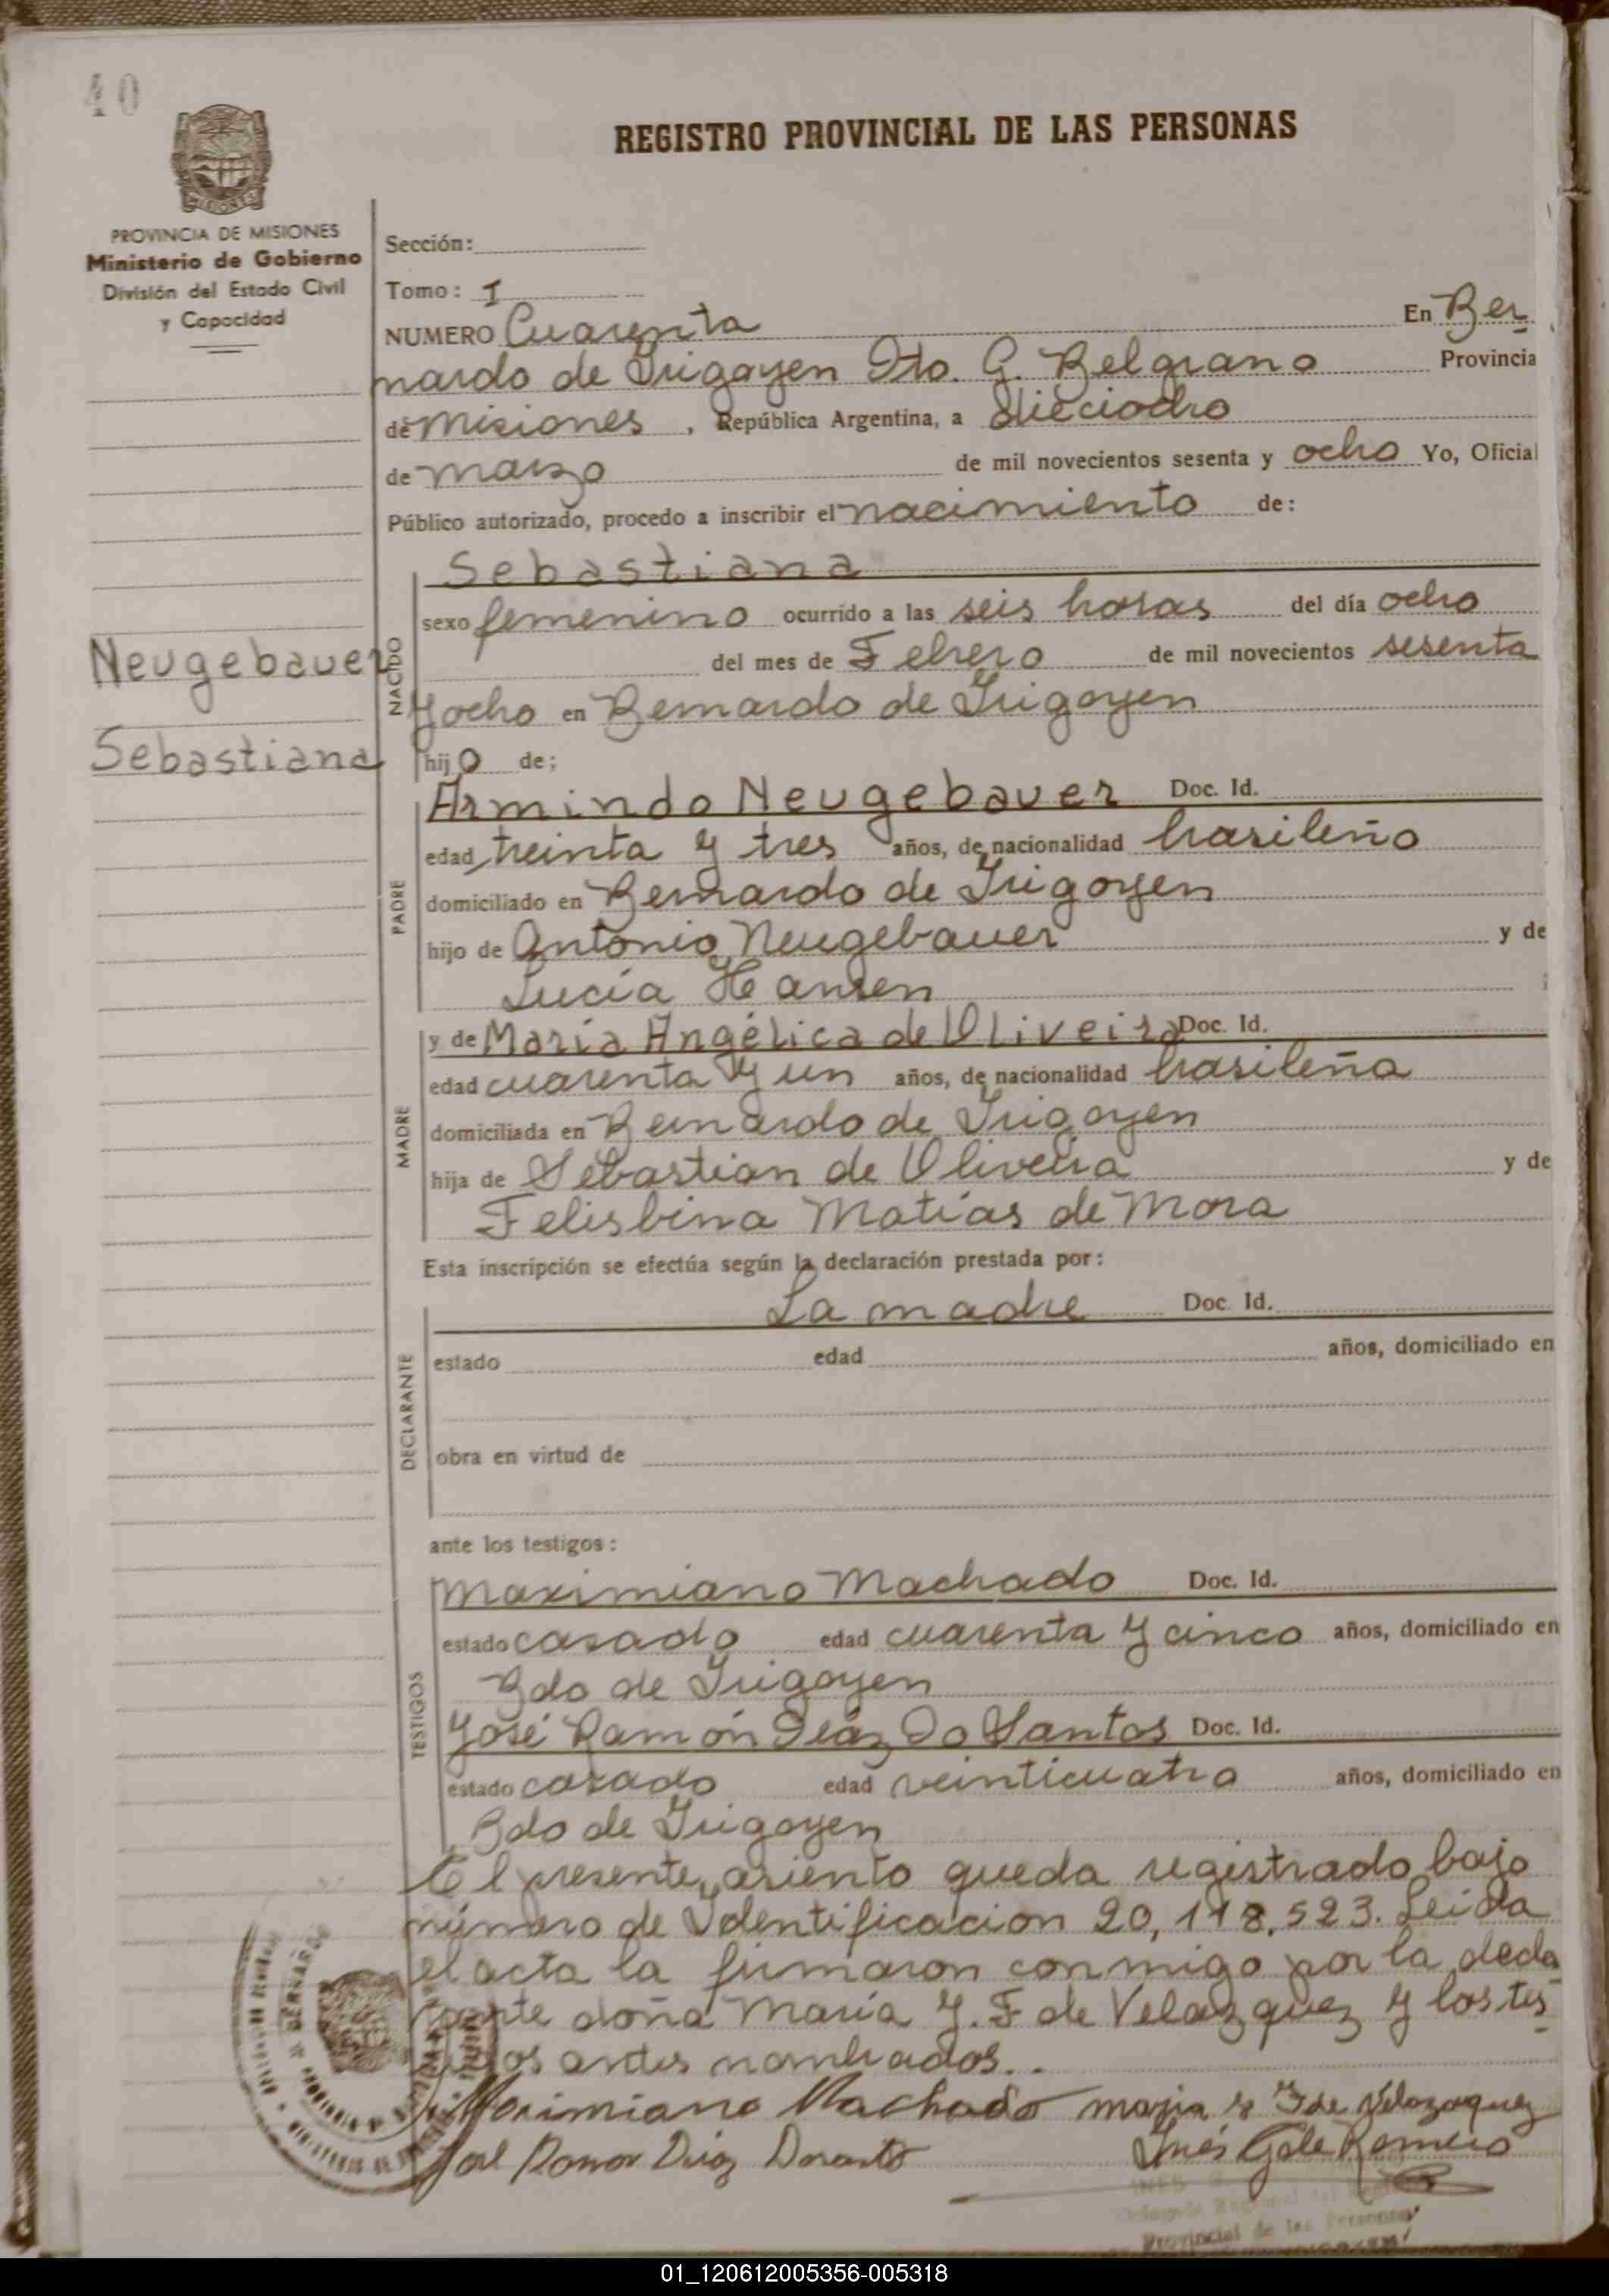 40
REGISTRO PROVINCIAL DE LAS PERSONAS
MISIONES
PROVINCIA DE MISIONES
Ministerio de Gobierno
División del Estado Civil
y Capacidad
Sección:
Tomo: I
NUMERO Cuarenta En Ber
nardo de Irigoyen Dto. G. Belgrano Provincia
de Misiones, República Argentina, a dieciocho
de marzo de mil novecientos sesenta y ocho Yo, Oficial
Público autorizado, procedo a inscribir el nacimiento de:
Sebastiana
NACIDO
sexo femenino ocurrido a las seis horas del día ocho
Neugebauer
del mes de Febrero de mil novecientos sesenta
y ocho en Bernardo de Irigoyen
Sebastiana
hijo de;
Armindo Neugebauer Doc. Id.
PADRE
edad treinta y tres años, de nacionalidad brasileño
domiciliado en Bernardo de Irigoyen
hijo de Antonio Neugebauer y de
Lucía Hansen
y de María Angélica de Oliveira Doc. Id.
MADRE
edad cuarenta y un años, de nacionalidad brasileña
domiciliada en Bernardo de Irigoyen
hija de Sebastian de Oliveira y de
Felisbina Matías de Mora
Esta inscripción se efectúa según la declaración prestada por:
La madre Doc. Id.
DECLARANTE
estado edad años, domiciliado en
obra en virtud de
ante los testigos:
Maximiano Machado Doc. Id.
TESTIGOS
estado casado edad cuarenta y cinco años, domiciliado en
Bdo de Irigoyen
José Ramón Díaz Do Santos Doc. Id.
estado casado edad veinticuatro años, domiciliado en
Bdo de Irigoyen
El presente asiento queda registrado bajo
número de Identificación 20,118,523. Leida
el acta la firmaron conmigo por la decla
rante doña María Y. F de Velazquez y los tes
tigos antes nombrados..
Maximiano Machado maria Y F de Velazaquez
José Ramon Diaz Dosanto Inés G de Romero
Provincial de las Personas
01_120612005356-005318